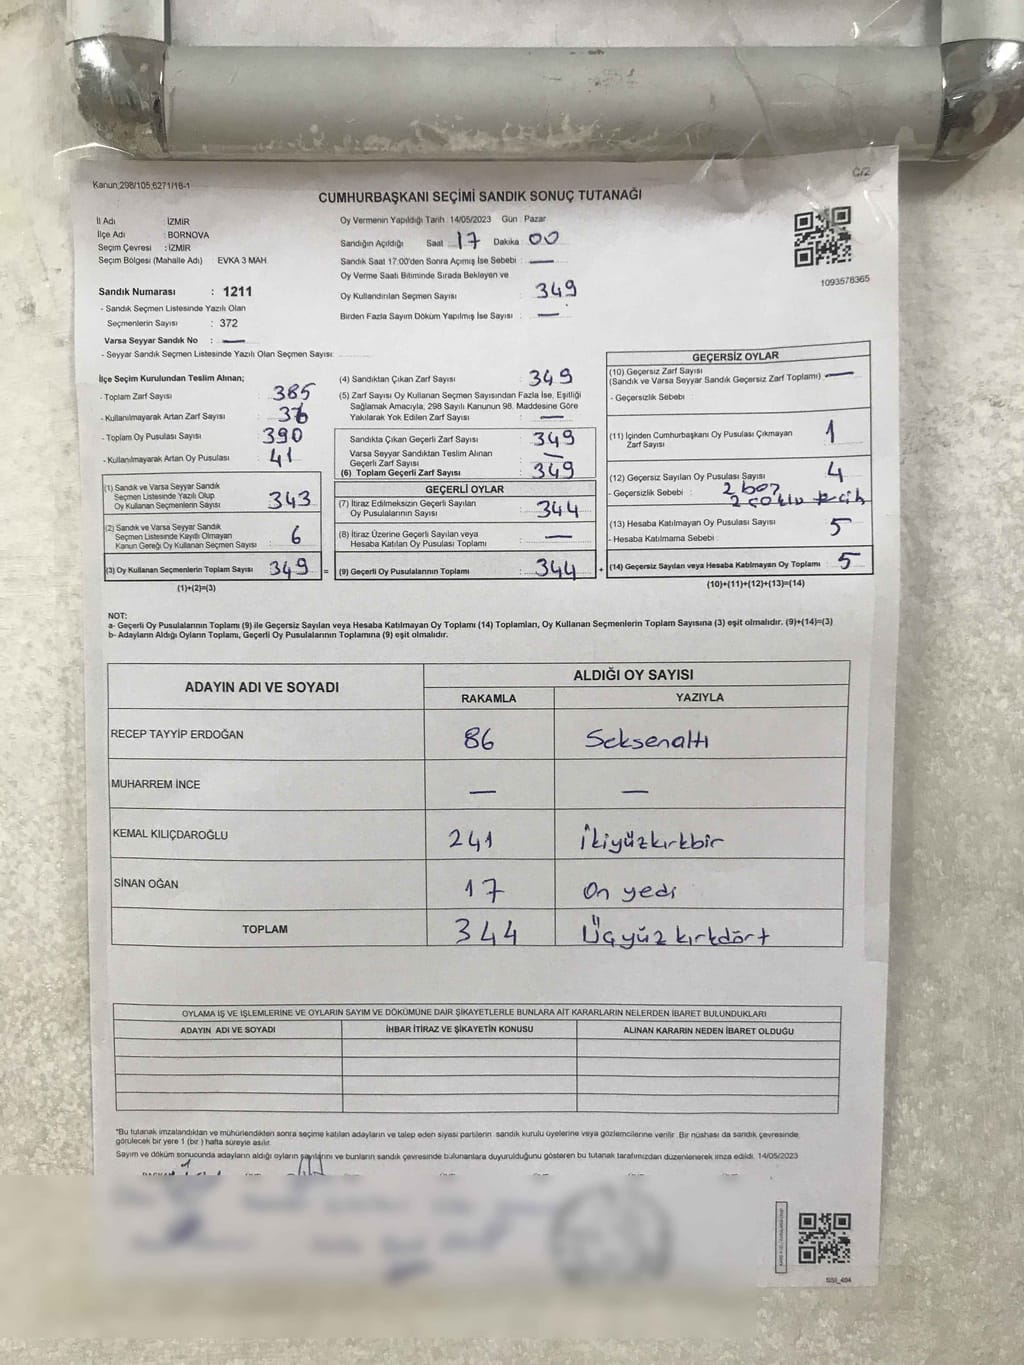 C/2
Kanun;298/105,6271/18-1
CUMHURBAŞKANI SEÇİMİ SANDIK SONUÇ TUTANAĞI
İl Adı : İZMİR
İlçe Adı : BORNOVA
Seçim Çevresi : İZMİR
Seçim Bölgesi (Mahalle Adı) : EVKA 3 MAH.
Sandık Numarası : 1211
- Sandık Seçmen Listesinde Yazılı Olan
Seçmenlerin Sayısı : 372
Varsa Seyyar Sandık No : —
- Seyyar Sandık Seçmen Listesinde Yazılı Olan Seçmen Sayısı:
Oy Vermenin Yapıldığı Tarih : 14/05/2023 Gün : Pazar
Sandığın Açıldığı Saat : 17 Dakika : 00
Sandık Saat 17:00'den Sonra Açımış İse Sebebi : —
Oy Verme Saati Bitiminde Sırada Bekleyen ve
Oy Kullandırılan Seçmen Sayısı : 349
Birden Fazla Sayım Döküm Yapılmış İse Sayısı : —
1093578365
İlçe Seçim Kurulundan Teslim Alınan;
- Toplam Zarf Sayısı : 385
- Kullanılmayarak Artan Zarf Sayısı : 36
- Toplam Oy Pusulası Sayısı : 390
- Kullanılmayarak Artan Oy Pusulası : 41
(1) Sandık ve Varsa Seyyar Sandık
Seçmen Listesinde Yazılı Olup
Oy Kullanan Seçmenlerin Sayısı : 343
(2) Sandık ve Varsa Seyyar Sandık
Seçmen Listesinde Kayıtlı Olmayan
Kanun Gereği Oy Kullanan Seçmen Sayısı : 6
(3) Oy Kullanan Seçmenlerin Toplam Sayısı : 349 =
(1)+(2)=(3)
(4) Sandıktan Çıkan Zarf Sayısı : 349
(5) Zarf Sayısı Oy Kullanan Seçmen Sayısından Fazla İse, Eşitliği
Sağlamak Amacıyla; 298 Sayılı Kanunun 98. Maddesine Göre
Yakılarak Yok Edilen Zarf Sayısı : —
Sandıkta Çıkan Geçerli Zarf Sayısı : 349
Varsa Seyyar Sandıktan Teslim Alınan
Geçerli Zarf Sayısı : —
(6) Toplam Geçerli Zarf Sayısı : 349
GEÇERLİ OYLAR
(7) İtiraz Edilmeksizin Geçerli Sayılan
Oy Pusulalarının Sayısı : 344
(8) İtiraz Üzerine Geçerli Sayılan veya
Hesaba Katılan Oy Pusulası Toplamı : —
(9) Geçerli Oy Pusulalarının Toplamı : 344 +
GEÇERSİZ OYLAR
(10) Geçersiz Zarf Sayısı
(Sandık ve Varsa Seyyar Sandık Geçersiz Zarf Toplamı) : —
- Geçersizlik Sebebi :
(11) İçinden Cumhurbaşkanı Oy Pusulası Çıkmayan
Zarf Sayısı : 1
(12) Geçersiz Sayılan Oy Pusulası Sayısı : 4
- Geçersizlik Sebebi : 2 boş
2 çoklu tercih
(13) Hesaba Katılmayan Oy Pusulası Sayısı : 5
- Hesaba Katılmama Sebebi :
(14) Geçersiz Sayılan veya Hesaba Katılmayan Oy Toplamı : 5
(10)+(11)+(12)+(13)=(14)
NOT:
a- Geçerli Oy Pusulalarının Toplamı (9) ile Geçersiz Sayılan veya Hesaba Katılmayan Oy Toplamı (14) Toplamları, Oy Kullanan Seçmenlerin Toplam Sayısına (3) eşit olmalıdır. (9)+(14)=(3)
b- Adayların Aldığı Oyların Toplamı, Geçerli Oy Pusulalarının Toplamına (9) eşit olmalıdır.
ADAYIN ADI VE SOYADI ALDIĞI OY SAYISI
RAKAMLA YAZIYLA
RECEP TAYYİP ERDOĞAN 86 Seksenaltı
MUHARREM İNCE — —
KEMAL KILIÇDAROĞLU 241 İkiyüzkırkbir
SİNAN OĞAN 17 On yedi
TOPLAM 344 Üçyüz kırkdört
OYLAMA İŞ VE İŞLEMLERİNE VE OYLARIN SAYIM VE DÖKÜMÜNE DAİR ŞİKAYETLERLE BUNLARA AİT KARARLARIN NELERDEN İBARET BULUNDUKLARI
ADAYIN ADI VE SOYADI İHBAR İTİRAZ VE ŞİKAYETİN KONUSU ALINAN KARARIN NEDEN İBARET OLDUĞU
*Bu tutanak imzalandıktan ve mühürlendikten sonra seçime katılan adayların ve talep eden siyasi partilerin sandık kurulu üyelerine veya gözlemcilerine verilir. Bir nüshası da sandık çevresinde,
görülecek bir yere 1 (bir) hafta süreyle asılır.
Sayım ve döküm sonucunda adayların aldığı oyların sayılarını ve bunların sandık çevresinde bulunanlara duyurulduğunu gösteren bu tutanak tarafımızdan düzenlenerek imza edildi. 14/05/2023